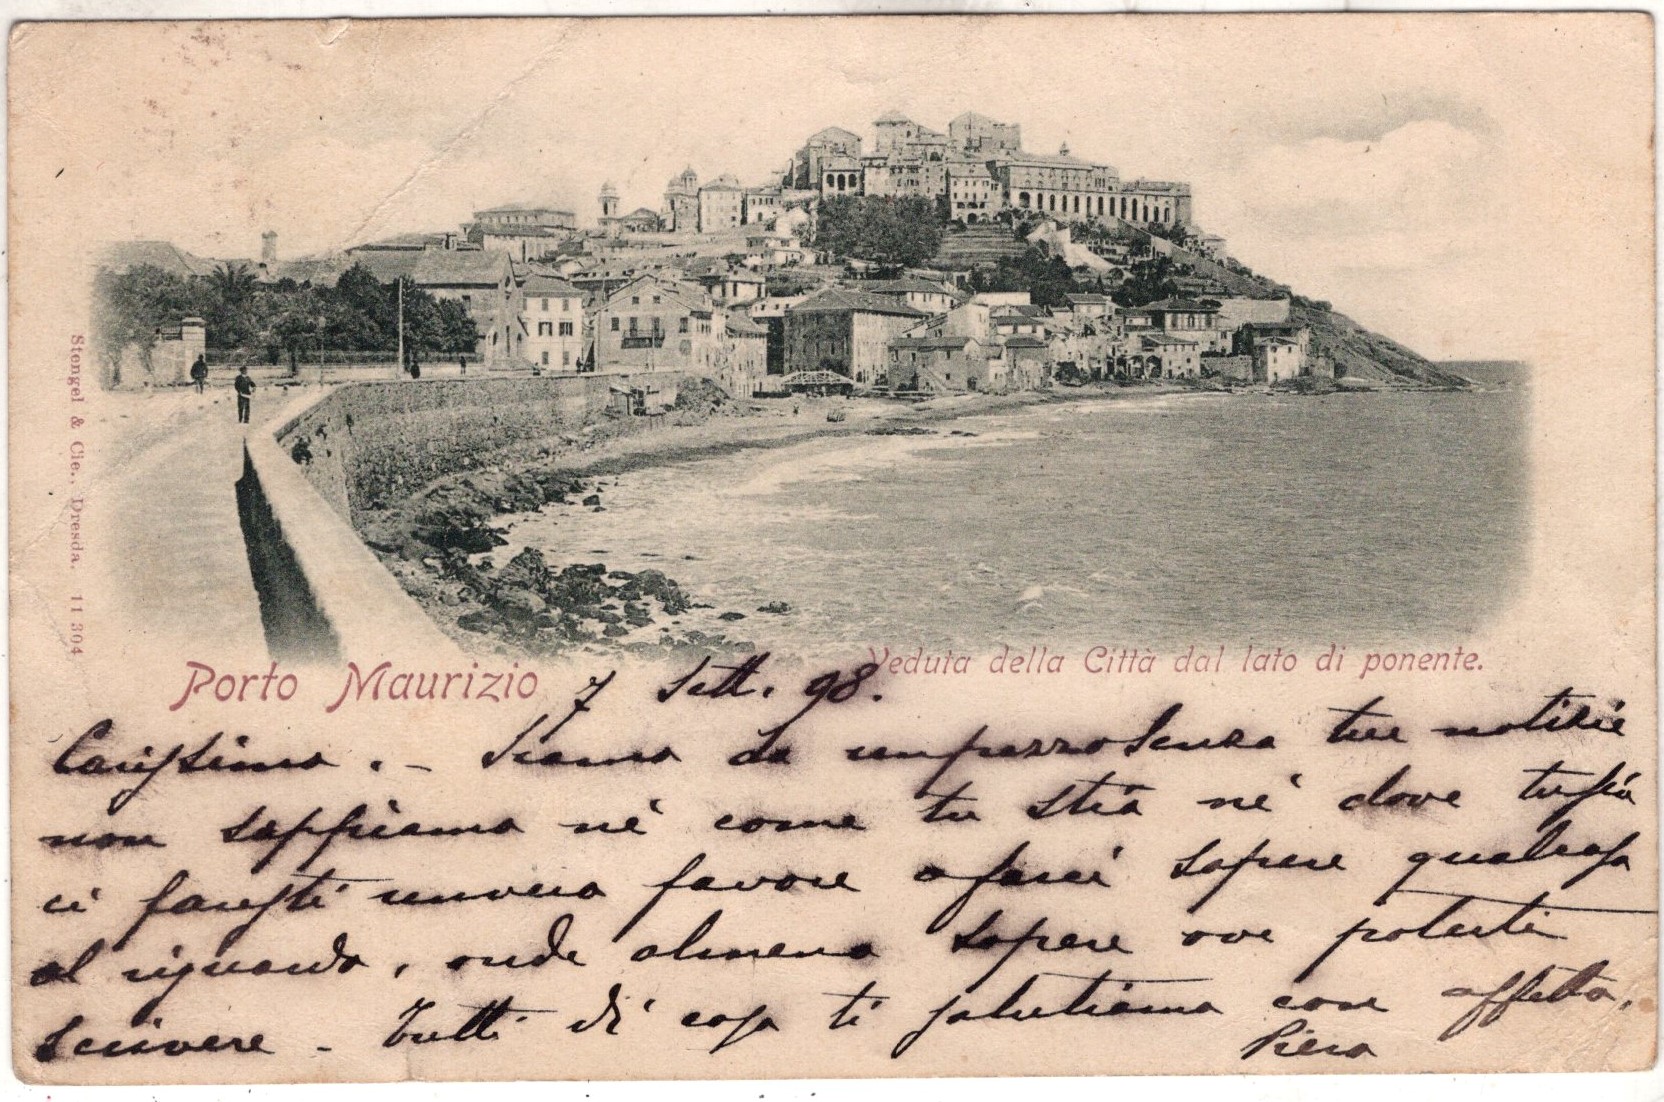 Stengel & Cie., Dresda. 11304
Porto Maurizio
Veduta della Città dal lato di ponente.
7 Sett. 98.
Carissimo. – Siamo da un pezzo senza tue notizie
non sappiamo nè come tu stia nè dove tu sia
ci faresti un vero favore a farci sapere qualcosa
al riguardo, onde almeno sapere ove poterti
scrivere – Tutti di casa ti salutiamo con affetto.
Piero